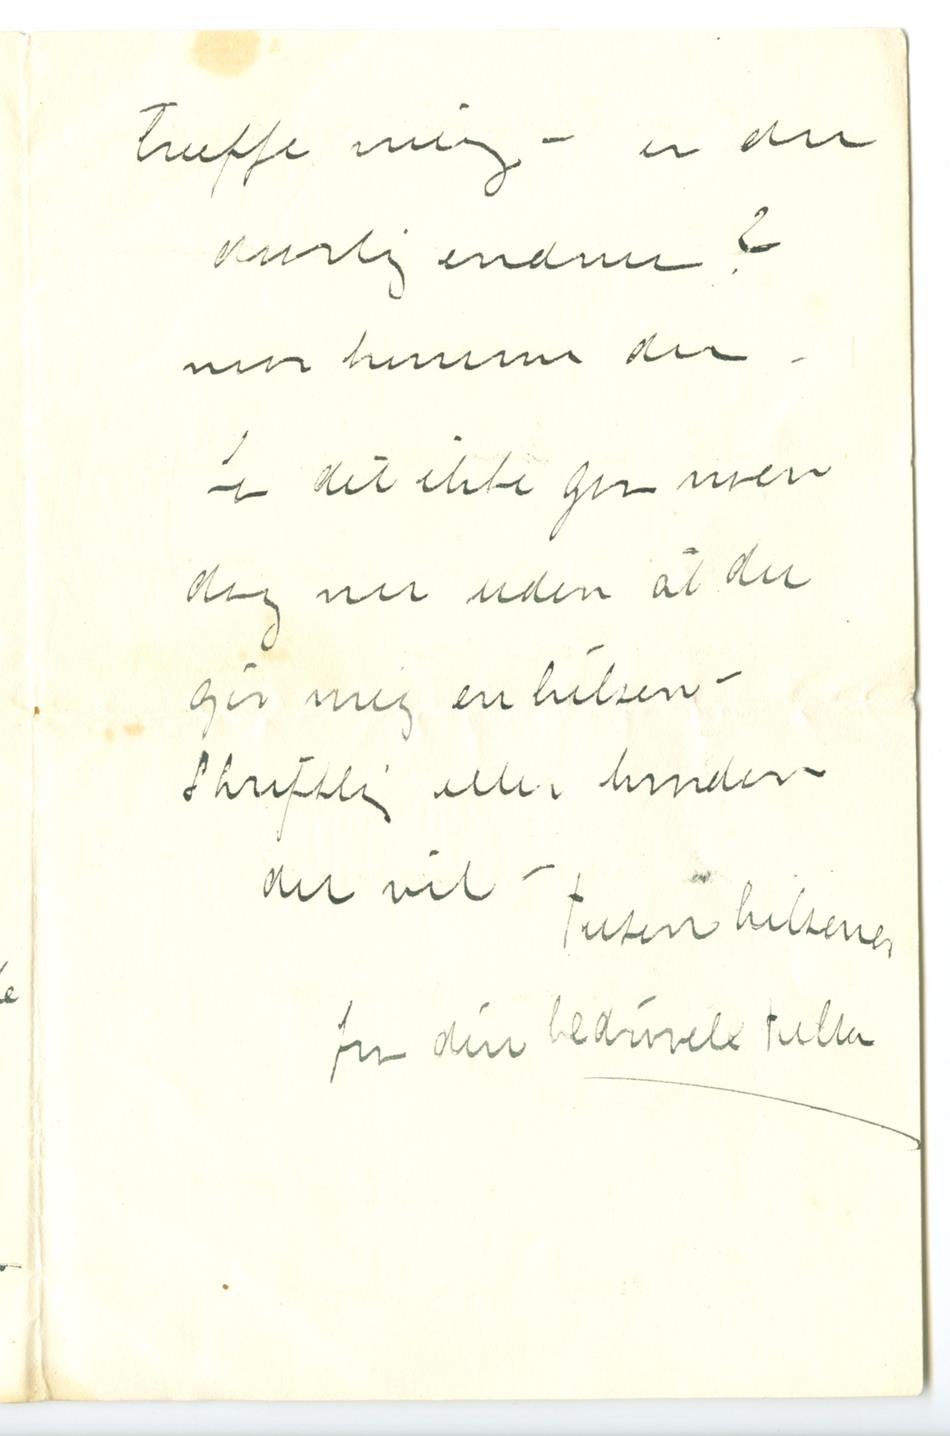 træffe mig – er du
daarlig endnu?
naar kommer du –
La det ikke gaa noen
dag nu uden at du
gir mig en hilsen –
Skriftlig eller hvordan
du vil – tusen hilsener
fra din bedrøvede Tulla